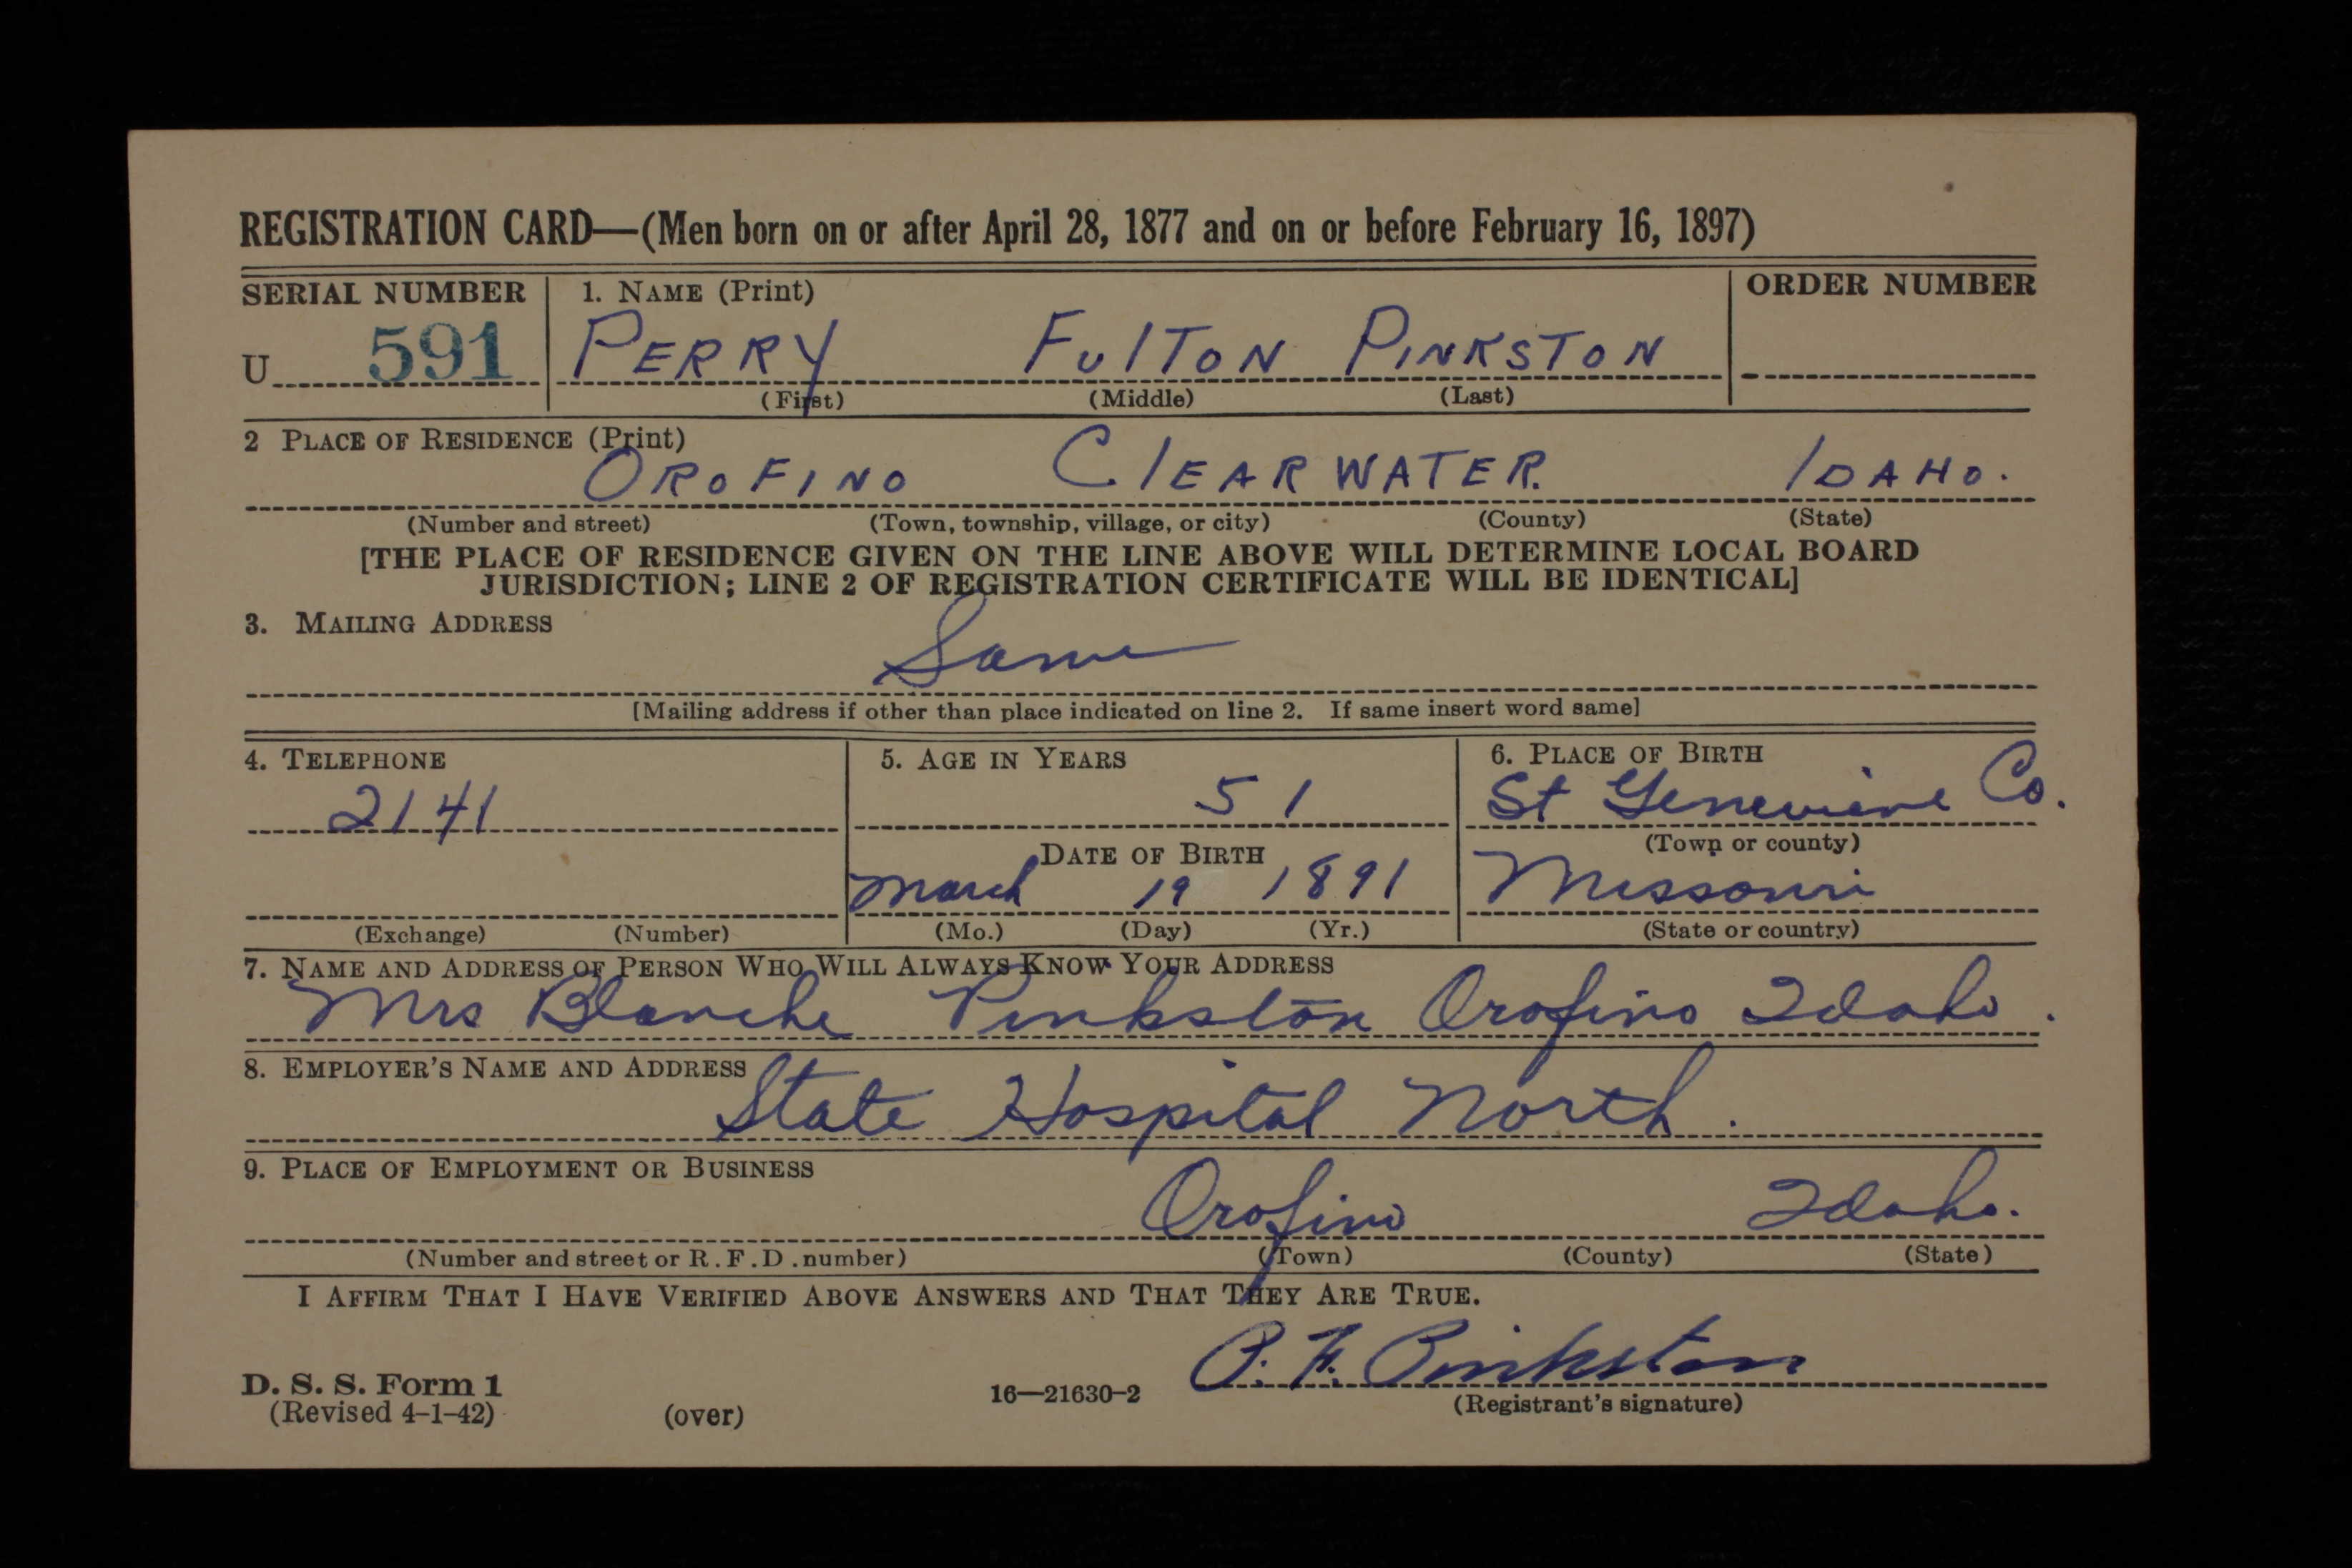 REGISTRATION CARD—(Men born on or after April 28, 1877 and on or before February 16, 1897)
SERIAL NUMBER 1. NAME (Print) ORDER NUMBER
U 591 PERRY FULTON PINKSTON
(First) (Middle) (Last)
2 PLACE OF RESIDENCE (Print)
OROFINO CLEARWATER. IDAHO.
(Number and street) (Town, township, village, or city) (County) (State)
[THE PLACE OF RESIDENCE GIVEN ON THE LINE ABOVE WILL DETERMINE LOCAL BOARD
JURISDICTION; LINE 2 OF REGISTRATION CERTIFICATE WILL BE IDENTICAL]
3. MAILING ADDRESS
Same
[Mailing address if other than place indicated on line 2. If same insert word same]
4. TELEPHONE 5. AGE IN YEARS 6. PLACE OF BIRTH
2141 51 St Genevieve Co.
(Town or county)
DATE OF BIRTH
March 19 1891 Missouri
(Exchange) (Number) (Mo.) (Day) (Yr.) (State or country)
7. NAME AND ADDRESS OF PERSON WHO WILL ALWAYS KNOW YOUR ADDRESS
Mrs Blanche Pinkston Orofino Idaho.
8. EMPLOYER'S NAME AND ADDRESS
State Hospital North.
9. PLACE OF EMPLOYMENT OR BUSINESS
Orofino Idaho.
(Number and street or R.F.D. number) (Town) (County) (State)
I AFFIRM THAT I HAVE VERIFIED ABOVE ANSWERS AND THAT THEY ARE TRUE.
P. F. Pinkston
D. S. S. Form 1 16—21630-2 (Registrant's signature)
(Revised 4-1-42) (over)